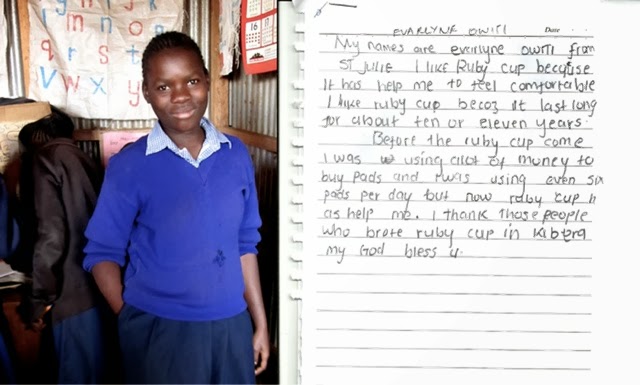 EVARLYNE OWITI Date
My names are evarlyne owiti from
ST JULIE I LIKE Ruby cup because
It has help me to feel comfortable
I like ruby cup becoz it last long
for about ten or eleven years.
Before the ruby cup come
I was using alot of money to
buy pads and I was using even six
pads per day but now ruby cup it
as help me. I thank those people
who brote ruby cup in Kibera
my God bless u.
m n o
q r s t
V w x y z
16 17